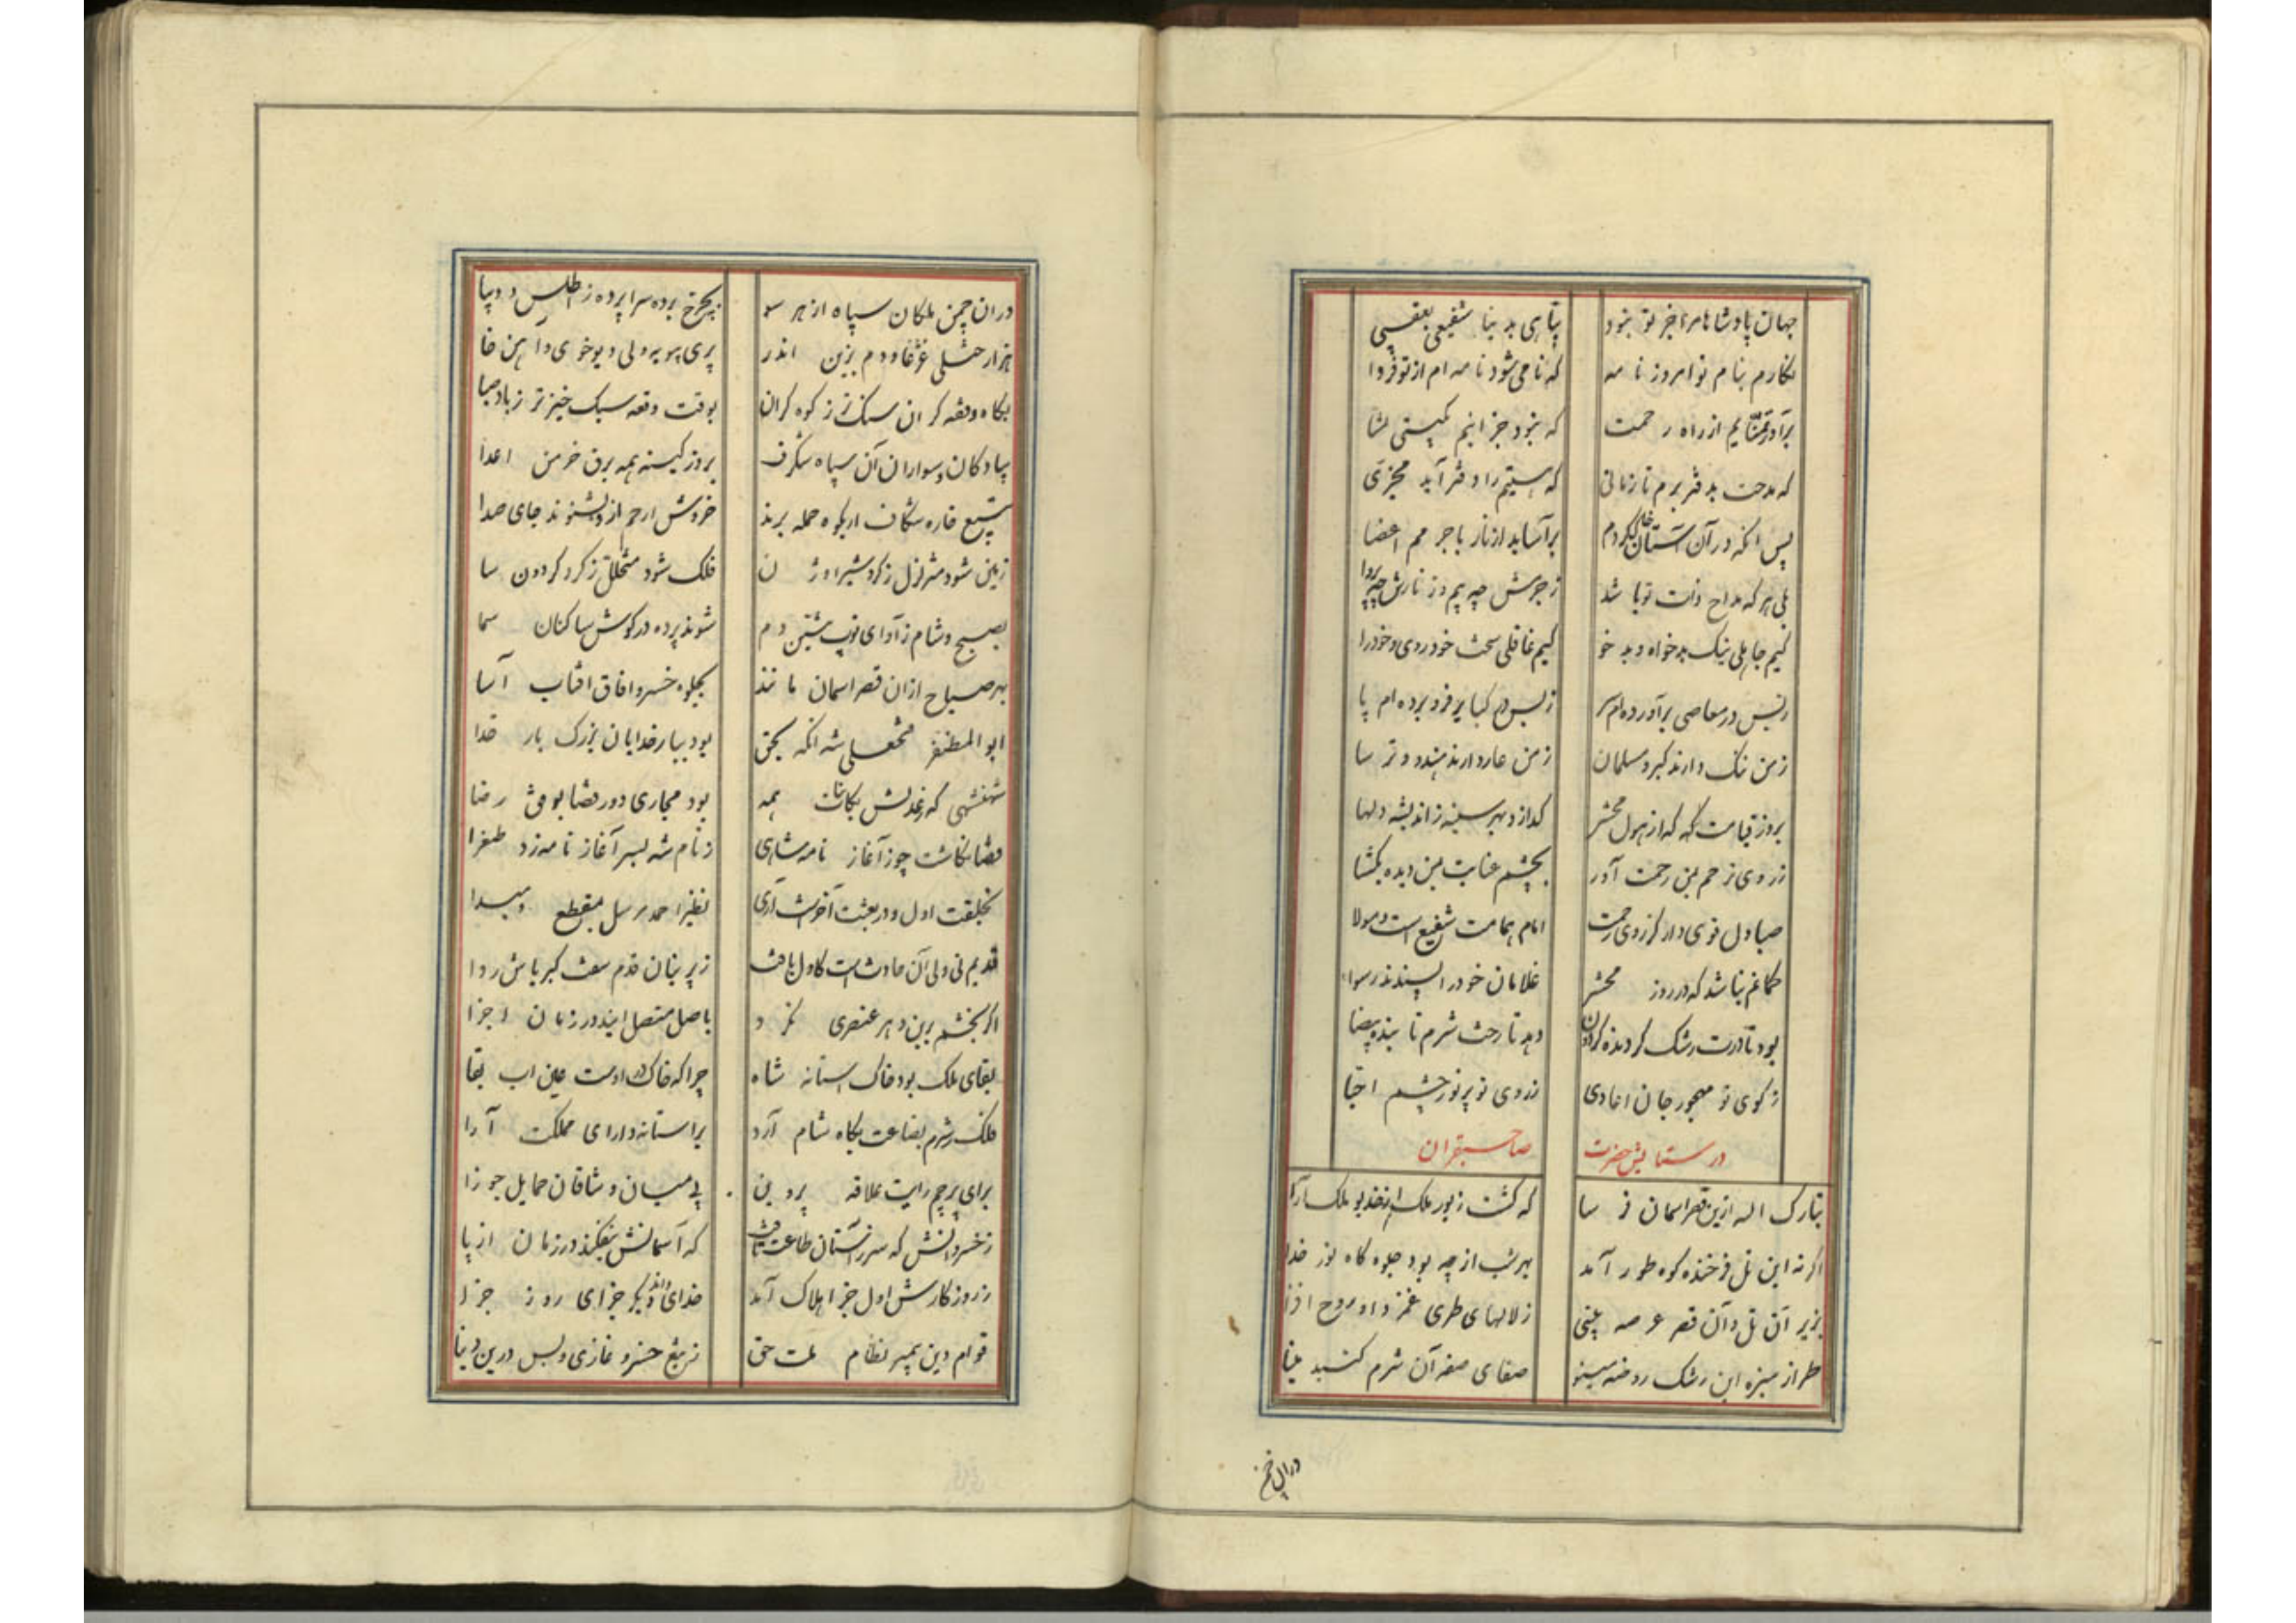 جهان پادشاها مرا جز تو نبود پناهی به دنیا شفیعی بعقبی
نگارم بنام تو امروز نامه که نامی شود نامه ام از تو فردا
برآور تمنایم از راه رحمت که نبود جز اینم بگیتی تمنا
که مدحت بدفتر برم تا زمانی که هستیم را دفتر آید مجزی
پس آنکه در آن آستان خاک گردم برآساید از نار با جرمم اعضا
بلی هر که مداح ذات تو باشد ز جرمش چه بیم و ز نارش چه پروا
کیم جاهلی نیک بدخواه و بد خو کیم غافلی سخت خودروی و خودرا
ز بس در معاصی برآورده ام سر ز بس در کبایر فرو برده ام پا
ز من ننگ دارند گبر و مسلمان ز من عار دارند هندو و ترسا
بروز قیامت که که از هول محشر گدازد بهر سینه ز اندیشه دلها
ز روی ترحم بمن رحمت آور بچشم عنایت بمن دیده بگشا
صبا دل قوی دار کز روی رحمت امام همامت شفیع است و مولا
کجا غم نباشد که در روز محشر غلامان خود را پسندند رسوا
بود تا درت رشک گردنده گردون دهد تا رخت شرم تابنده بیضا
ز کوی تو مهجور جان اعادی ز روی تو پرنور چشم احبا
در ستایش حضرت صاحبقران
تبارک الله ازین قصر آسمان فرسا که گشت زیور ملک از خدیو ملک آرا
اگر نه این تل فرخنده کوه طور آمد بهر شب از چه بود جلوه گاه نور خدا
بزیر آن تل و آن قصر عرصه بینی ز لالهای طری غمزدا و روح افزا
طراز سبزه این رشک روضه مینو صفای صفه آن شرم گنبد مینا
در آن چمن
در آن چمن ملکان سپاه از هر سو بچرخ برده سرا پرده ز اطلس و دیبا
هزار خیلی غژغاو دم بزین اندر پری بپویه ولی دیوخوی و آهن خا
بگاه وقفه گران سنگ تر ز کوه گران بوقت وقعه سبک خیزتر ز باد صبا
پیادگان و سواران آن سپاه شگرف بروز کینه همه برق خرمن اعدا
بتیغ خاره شکاف ار بکوه حمله برند خروش ارحم ازو بشنوند جای صدا
زمین شود متزلزل ز گرد شیر اوژن فلک شود متخلل ز گرد گردون سا
بصبح و شام ز آوای توپ تنین دم شوند پرده در گوش ساکنان سما
بهر صباح از آن قصر آسمان مانند بجلوه خسرو آفاق آفتاب آسا
ابوالمظفر فتحعلی شه آنکه بحق بود ببار خدایان بزرگ بار خدا
شهنشهی که ز عدلش بکائنات همه بود مجاری دور قضا بوفق رضا
قضا نگاشت چو ز آغاز نامه شاهی ز نام شه بسر آغاز نامه زد طغرا
بخلقت اول و در بعثت آخرست آری نظیر احمد مرسل بمقطع و مبدا
قدیم نی ولی آن حادث است کاول یافت ز پرنیان قدم سفت کبریاش ردا
اگر بخشم ببیند بهر عنصری نگرد باصل متصل آیند در زمان اجزا
بقای ملک بود خاک آستانه شاه چرا که خاک در اوست عین آب بقا
فلک ز شرم بضاعت بگاه شام آرد بر آستانه دارای مملکت آرا
برای پرچم رایت علاقه پروین پی میان وشاقان حمایل جوزا
ز خسروانش که سر ز آستان طاعت تافت که آسمانش نیفکند در زمان از پا
ز روزگارش اول جزا هلاک آمد خدای داند دیگر جزای روز جزا
قوام دین پیمبر نظام ملت حق ز تیغ خسرو غازی و بس درین دنیا